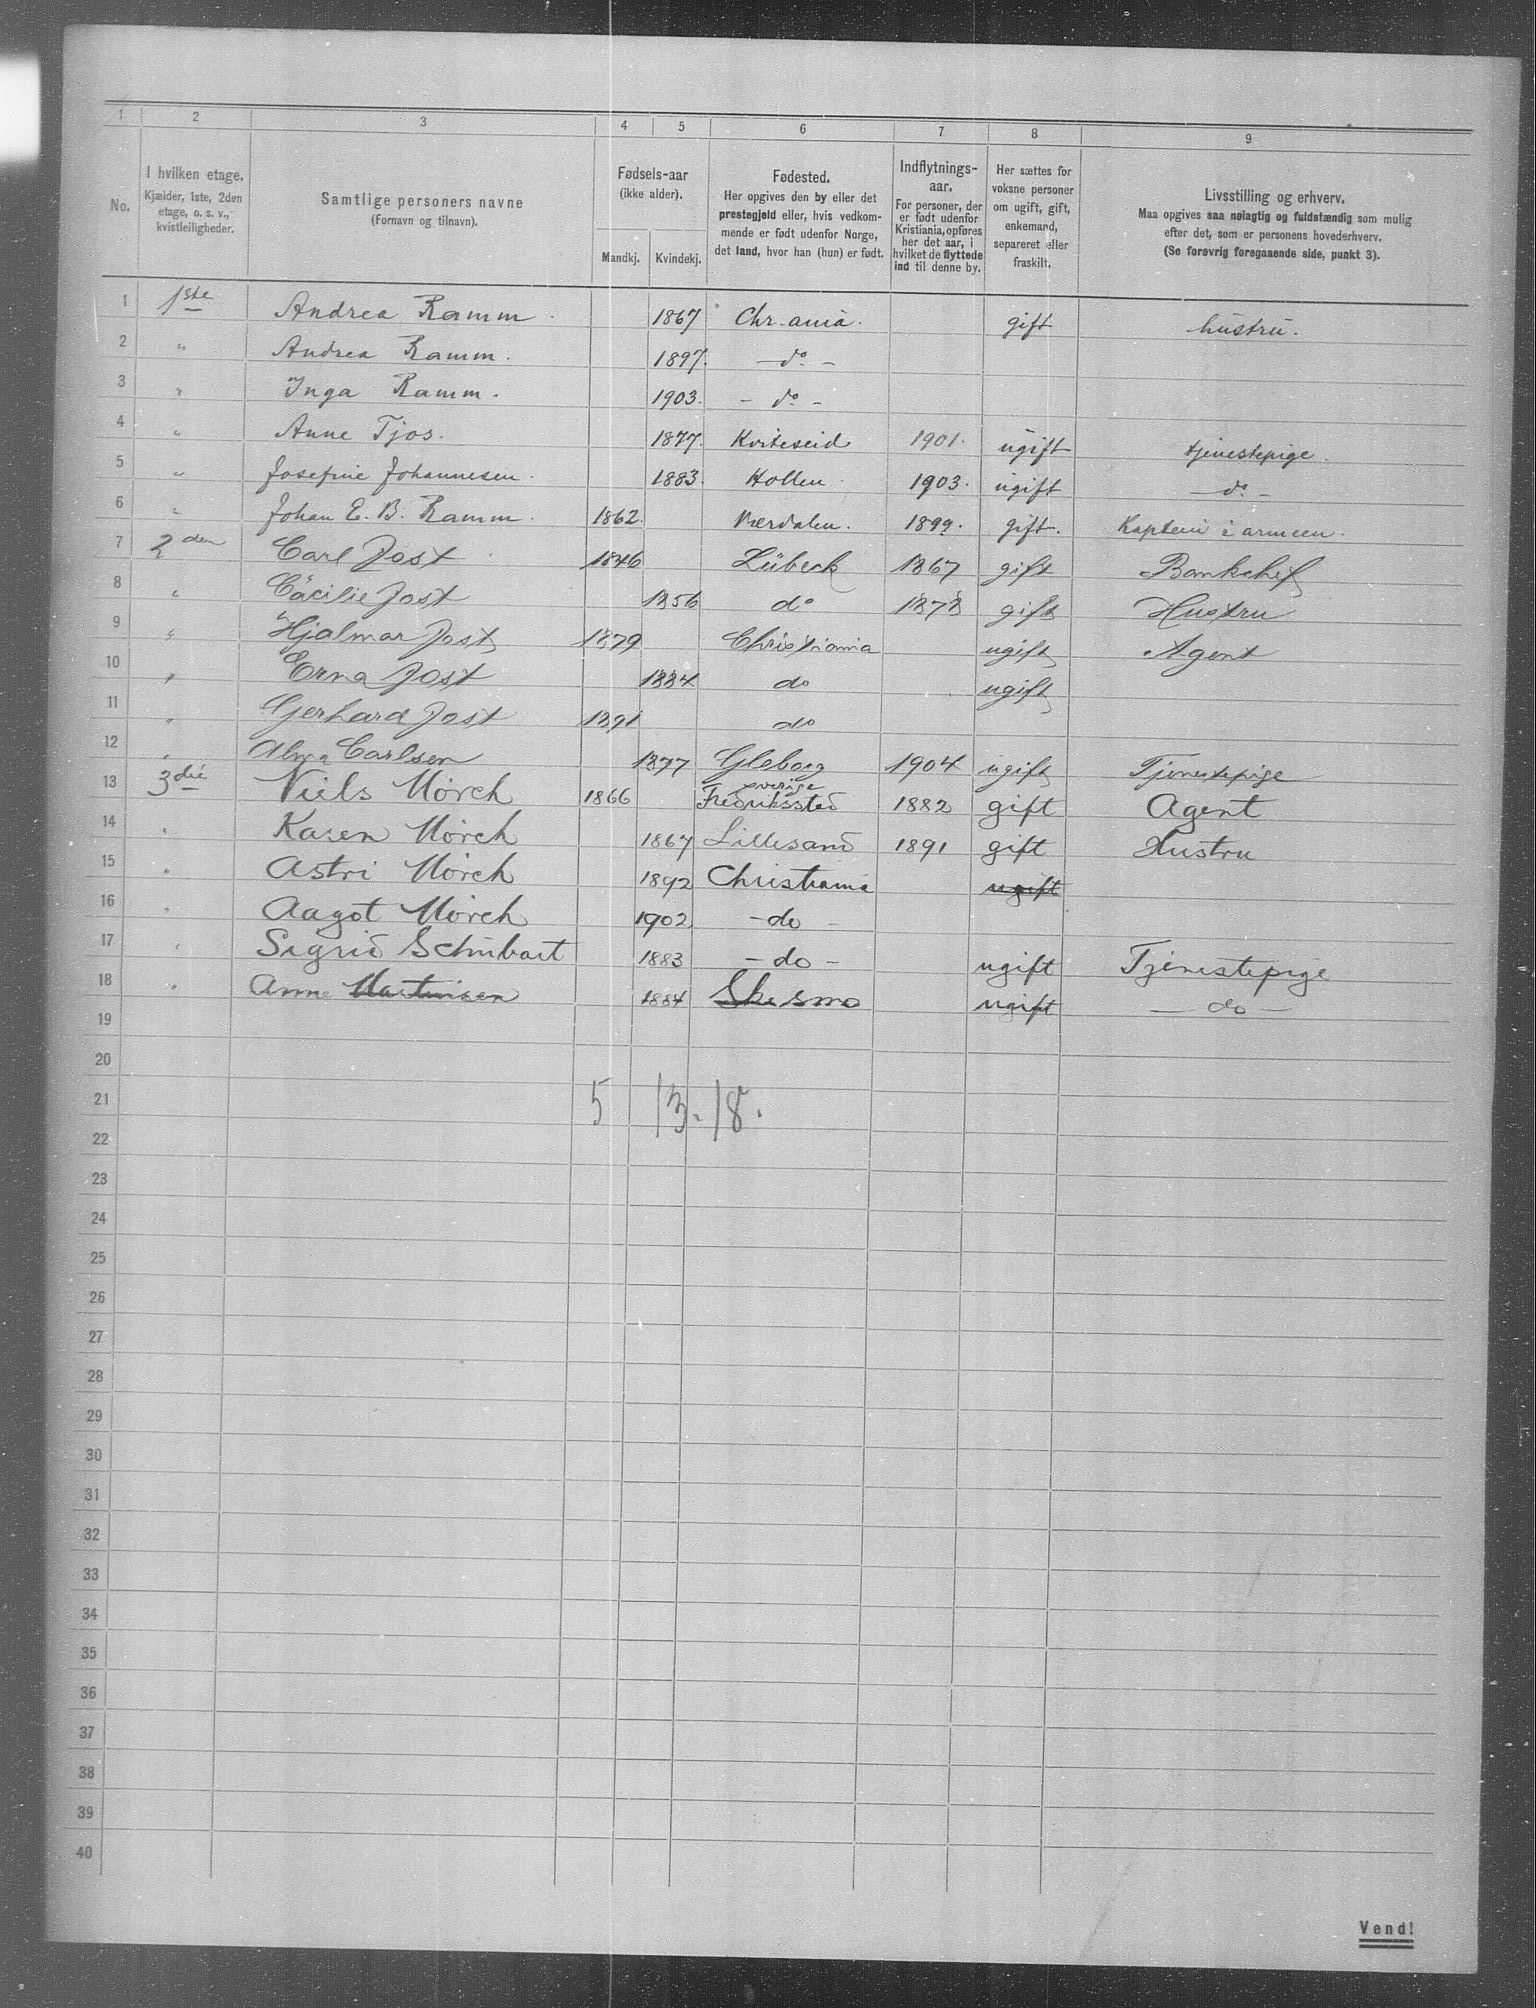 1 2 3 4 5 6 7 8 9
No.
I hvilken etage.
Kjælder, 1ste, 2den
etage, o. s. v.,
kvistleiligheder.
Samtlige personers navne
(Fornavn og tilnavn).
Fødsels-aar
(ikke alder).
Mandkj. Kvindekj.
Fødested.
Her opgives den by eller det
prestegjeld eller, hvis vedkom-
mende er født udenfor Norge,
det land, hvor han (hun) er født.
Indflytnings-
aar.
For personer, der
er født udenfor
Kristiania, opføres
her det aar, i
hvilket de flyttede
ind til denne by.
Her sættes for
voksne personer
om ugift, gift,
enkemand,
separeret eller
fraskilt.
Livsstilling og erhverv.
Maa opgives saa nøiagtig og fuldstændig som mulig
efter det, som er personens hovederhverv.
(Se forøvrig foregaaende side, punkt 3).
1 1ste Andrea Ramm. 1867 Chr.ania. gift hustru.
2 " Andrea Ramm. 1897. - do -
3 " Inga Ramm. 1903. - do -
4 " Anne Tjos. 1877. Kviteseid 1901. ugift tjenestepige.
5 " Josefine Johannesen. 1883. Hollen. 1903. ugift - do -
6 " Johan E. B. Ramm. 1862. Værdalen. 1899. gift. Kaptein i armeen.
7 2den Carl Jost 1846 Lübeck 1867 gift Bankchef
8 " Cäcilie Jost 1856 do 1878 gift Hustru
9 " Hjalmar Jost 1879 Christiania ugift Agent
10 " Erna Jost 1884 do ugift
11 " Gerhard Jost 1891 do
12 " Alma Carlsen 1877 Gleborg 1904 ugift Tjenestepige
sverige
13 3die Niels Mørch 1866 Fredriksstad 1882 gift Agent
14 " Karen Mørch 1867 Lillesand 1891 gift Hustru
15 " Astri Mørch 1892 Christiania ugift
16 " Aagot Mørch 1902 - do -
17 " Sigrid Schubart 1883 - do - ugift Tjenestepige
18 " Anna Martinisen 1884 Skesmo ugift - do -
19
20
21 5 13. 18.
22
23
24
25
26
27
28
29
30
31
32
33
34
35
36
37
38
39
40
Vend!